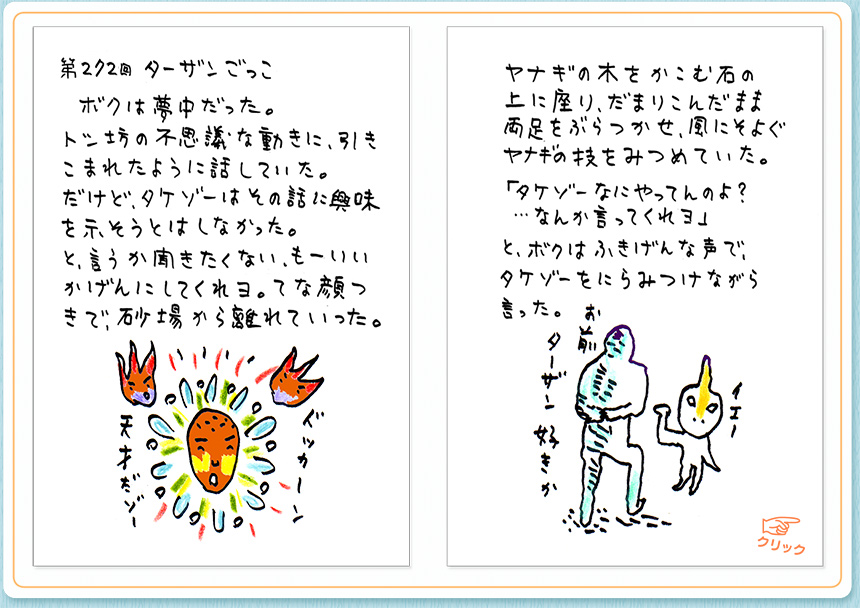 第272回 ターザンごっこ
ボクは夢中だった。
トン坊の不思議な動きに、引き
こまれたように話していた。
だけど、タケゾーはその話に興味
を示そうとはしなかった。
と、言うか聞きたくない、もーいい
かげんにしてくれヨ。てな顔つ
きで、砂場から離れていった。
天才だゾー
バッカーン
ヤナギの木をかこむ石の
上に座り、だまりこんだまま
両足をぶらつかせ、風にそよぐ
ヤナギの枝をみつめていた。
「タケゾーなにやってんのよ?
…なんか言ってくれヨ」
と、ボクはふきげんな声で、
タケゾーをにらみつけながら
言った。
お前
ターザン
好きか
イエー
クリック